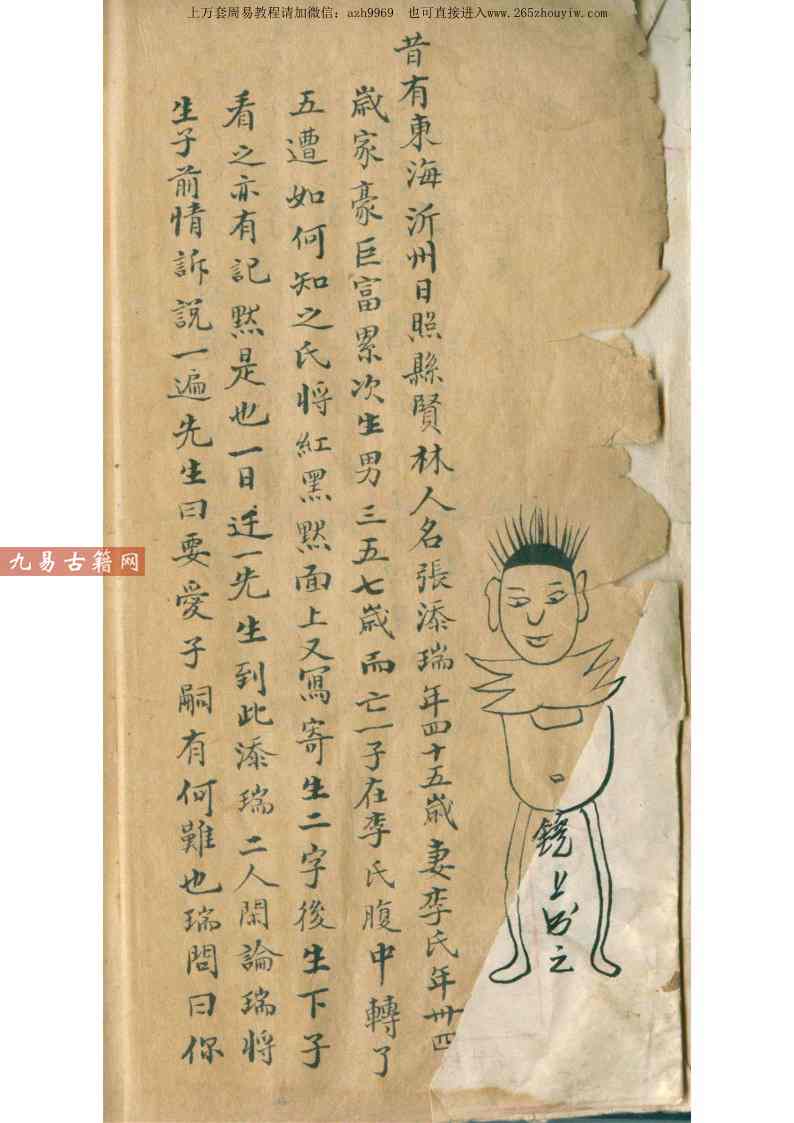 上万套周易教程请加微信：azh9969　也可直接进入www.265zhouyiw.com
昔有東海沂州日照縣賢林人名張添瑞年四十五歲妻李氏年卅四
歲家豪巨富累次生男三五七歲而亡一子在李氏腹中轉了
五遭如何知之氏將紅黑黙面上又寫寄生二字後生下子
看之亦有記黙是也一日迁一先生到此添瑞二人閑論瑞將
生子前情訴説一遍先生曰要愛子嗣有何難也瑞問曰你
上
之
九易古籍网